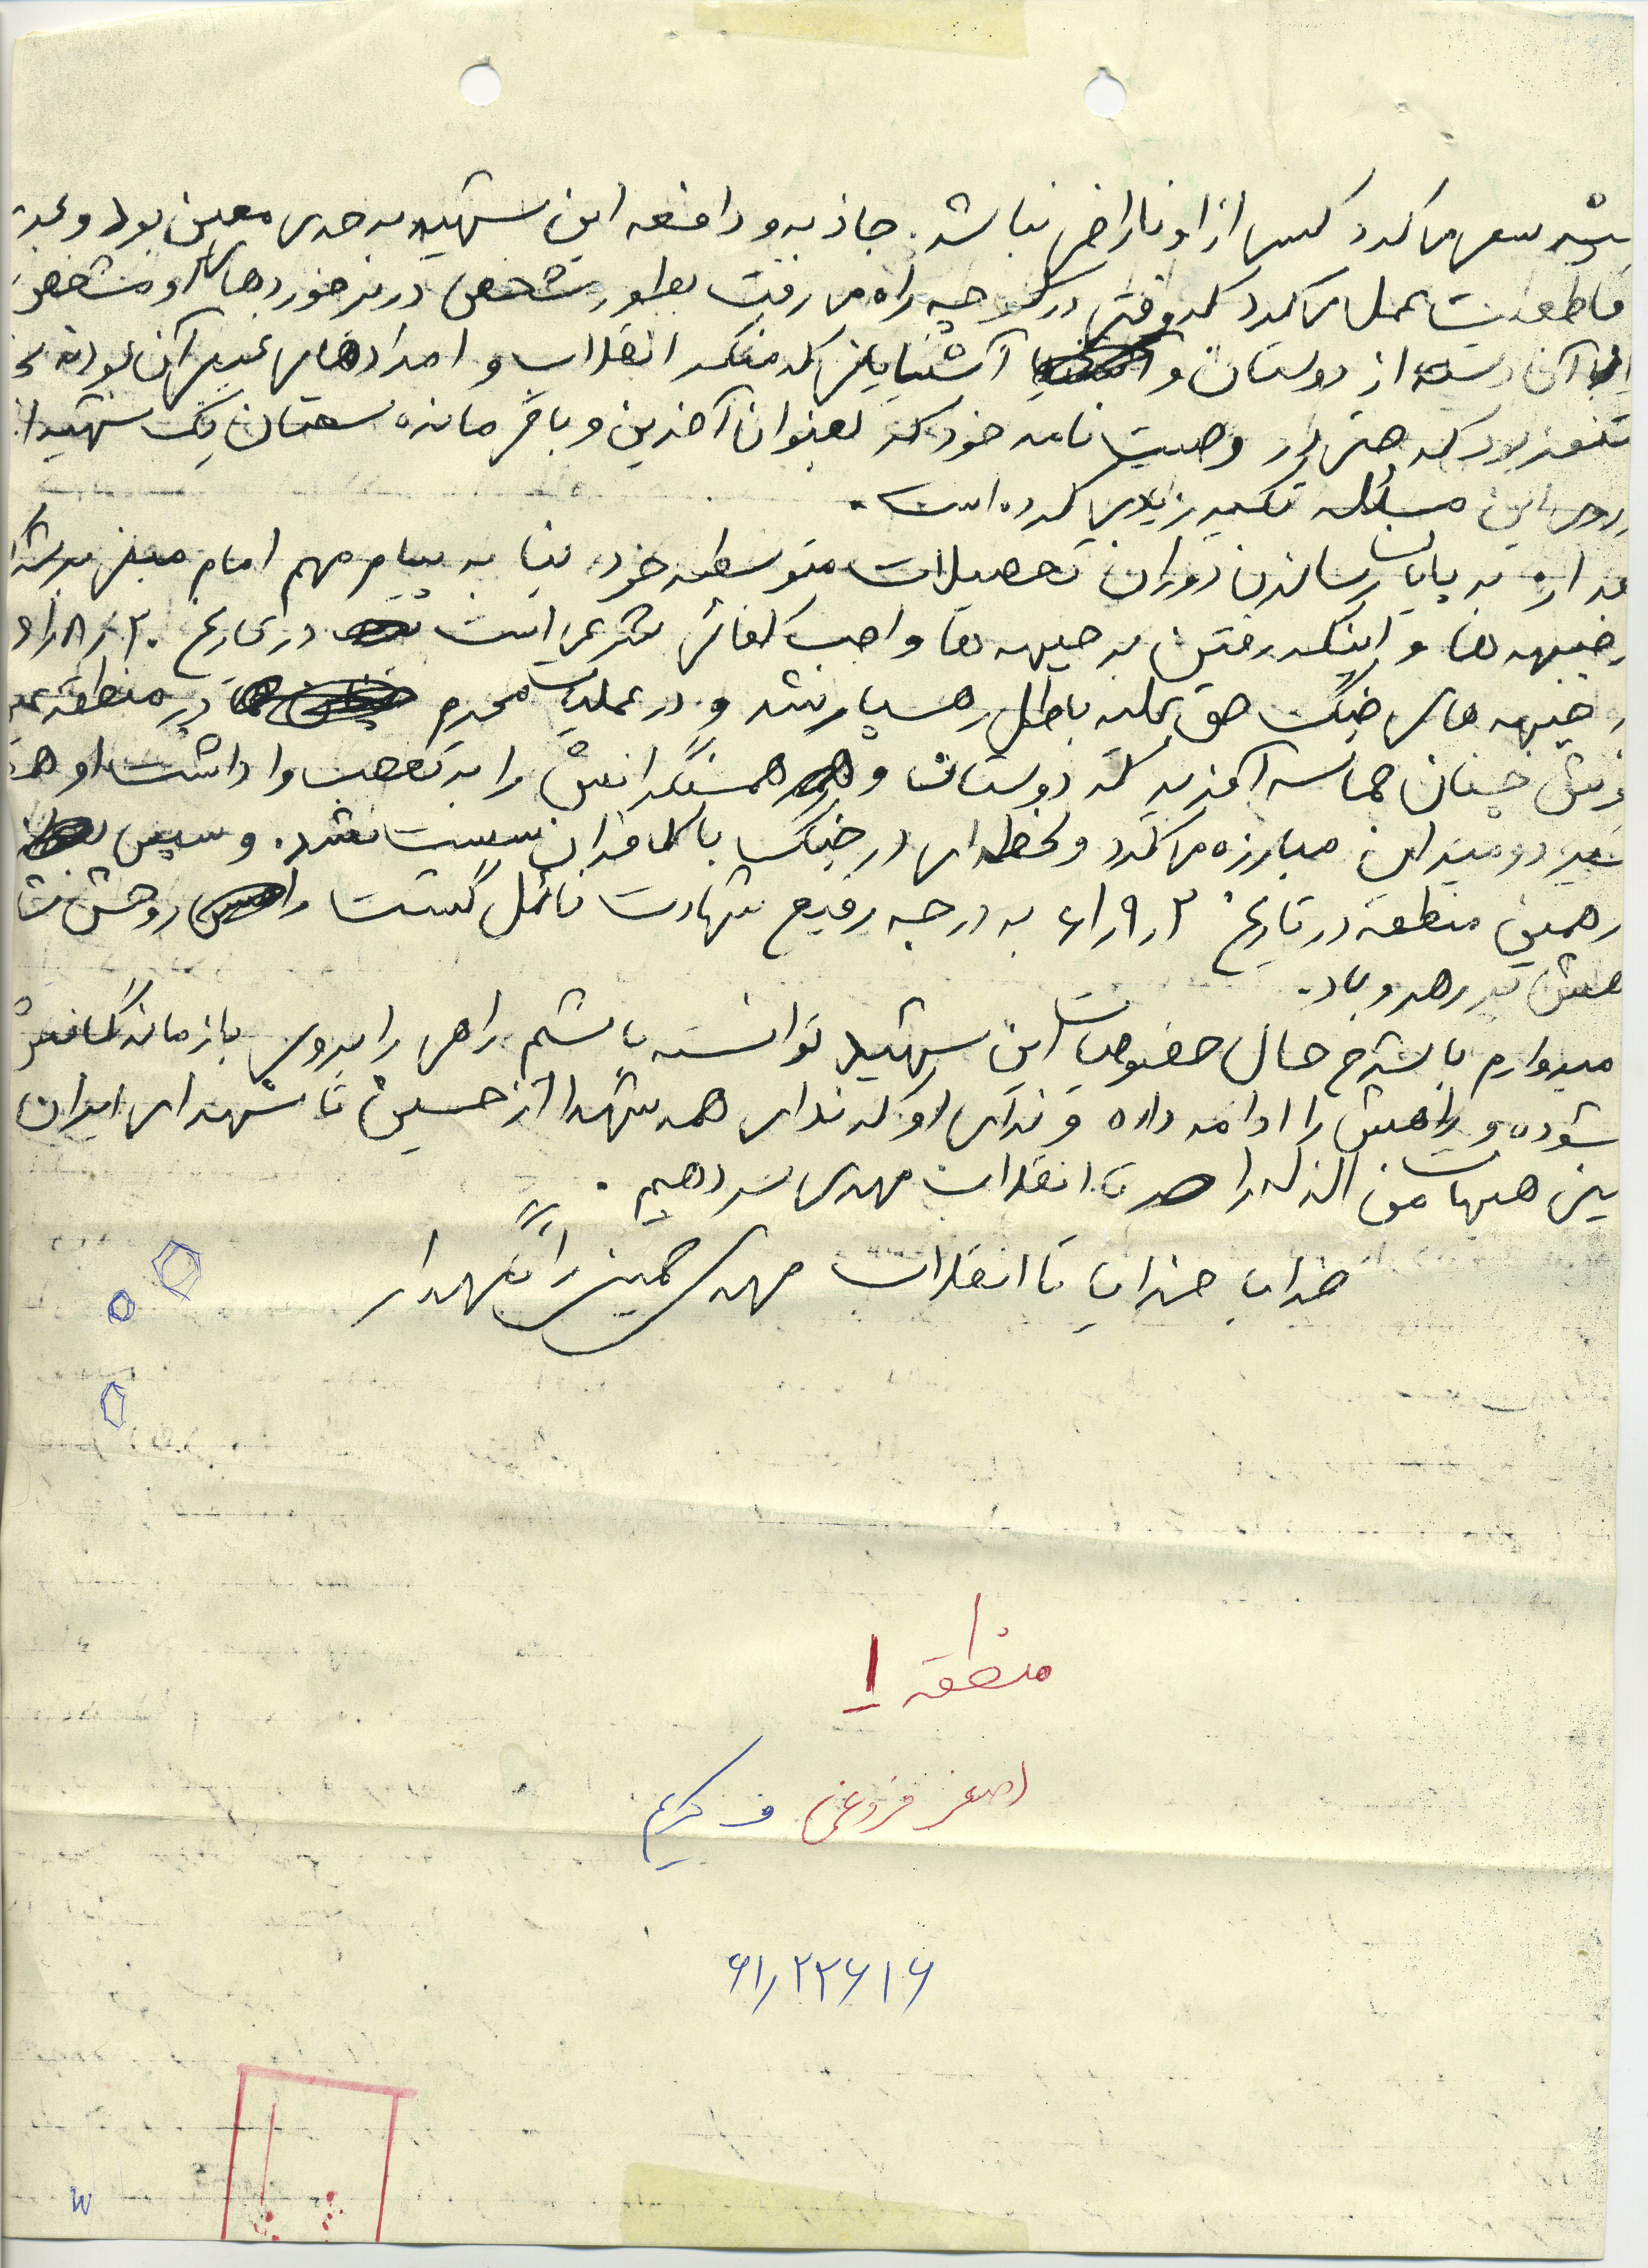 سعی میکرد کسی از او ناراضی نباشد. جاذبه و دافعه این شهید به حدی معین بود و
قاطعیت عمل میکرد که وقتی در کوچه راه می رفت بطور مشخص در برخوردهای او مشخص
آن دسته از دوستان و آشنایانی که منکر انقلاب و امدادهای غیبی آن بودند
متنفر بود که حتی در وصیت نامه خود که بعنوان آخرین و باقیمانده سخنان یک شهید
روی این مسئله تکیه زیادی کرده است.
از به پایان رساندن دوران تحصیلات متوسطه خود بنا به پیام مهم امام مبنی
جبهه ها و اینکه رفتن به جبهه ها واجب کفائی شرعی است در تاریخ
جبهه های جنگ حق علیه باطل رهسپار شد و در عملیات محرم در منطقه
چنان حماسه آفرید که دوستان و همسنگرانش را به تعجب وا داشت او
در دو میدان مبارزه میکرد و لحظه ای در جنگ با کافران سست نشد. و سپس
همین منطقه در تاریخ ۲ر۹ر۶۱ به درجه رفیع شهادت نائل گشت روحش
پر رهرو باد.
امیدوارم با شرح حال خصوصیات این شهید توانسته باشم راهی را بروی بازماندگانش
و راهش را ادامه داده و ندای او که ندای همه شهدا از حسین تا شهدای ایران
هیهات من الذله را تا انقلاب مهدی سر دهیم.
خدایا خدایا تا انقلاب مهدی خمینی را نگهدار
منطقه ۱
اصغر فروغی ف کریم
۶۱ر۲۲۶۱۶